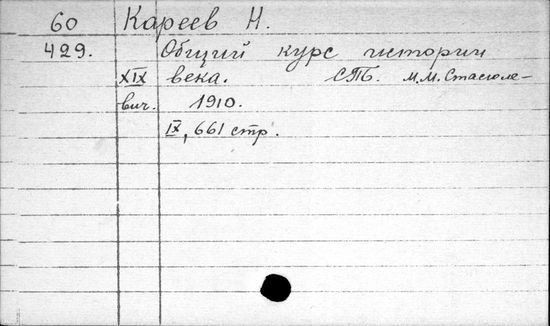 60 Кареев Н.
429. Общий курс истории
XIX века. СПБ. М.М.Стасюле-
вич. 1910.
IX, 661 стр.